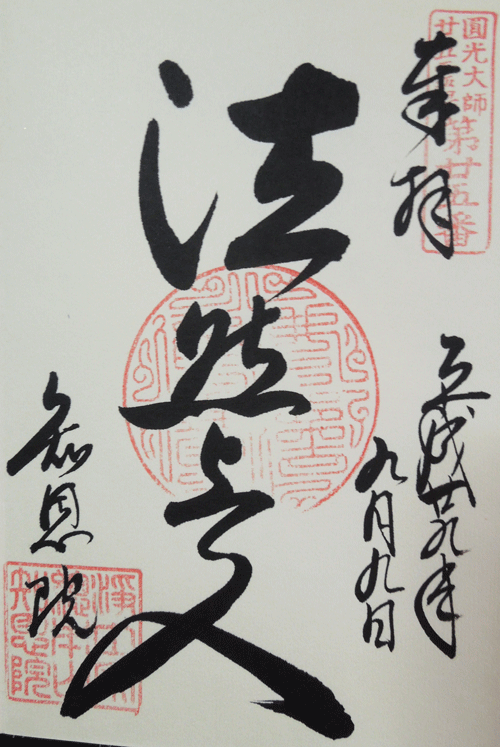 奉拝
圓光大師
廿五霊場第廿五番
平成廿九年
九月九日
法然上人
知恩院
浄土宗
総本山
知恩院